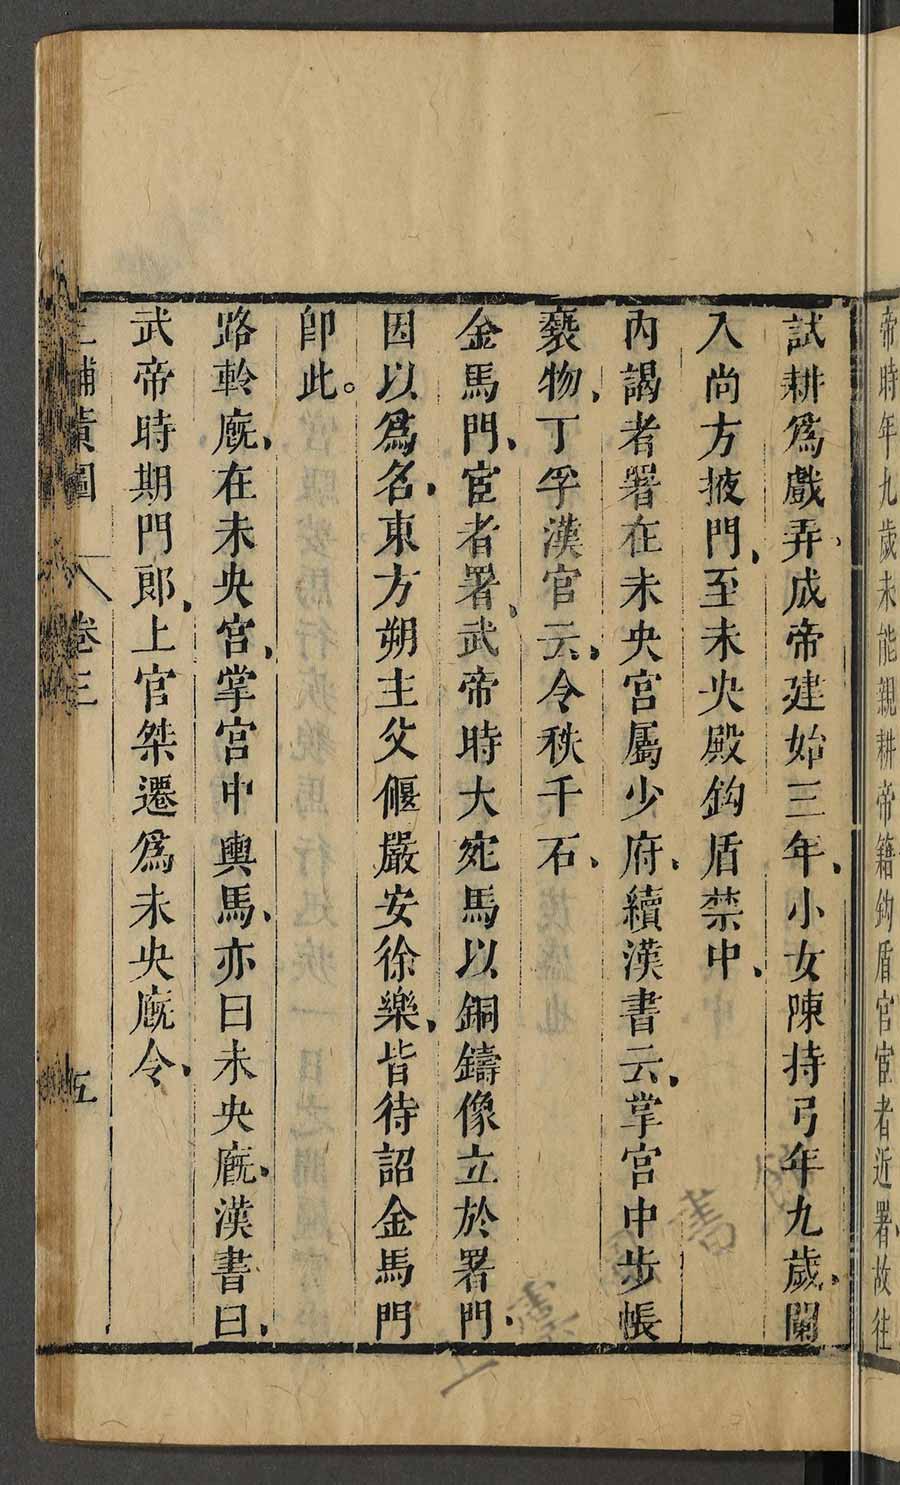 帝時年九歲未能親耕帝籍鈎盾官宦者近署故往
試耕爲戲弄成帝建始三年小女陳持弓年九歲闌
入尚方掖門至未央殿鈎盾禁中
內謁者署在未央宮屬少府續漢書云掌宮中步帳
褻物丁孚漢官云令秩千石
金馬門宦者署武帝時大宛馬以銅鑄像立於署門
因以爲名東方朔主父偃嚴安徐樂皆待詔金馬門
卽此。
路軨廐在未央宮掌宮中輿馬亦曰未央廐漢書曰
武帝時期門郎上官桀遷爲未央廐令
三輔黃圖 卷三 五